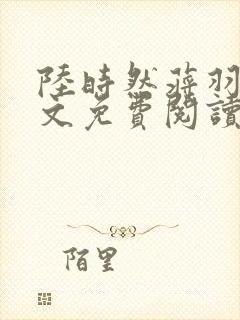 陸時然蒋羽
文免費閱讀
陌里